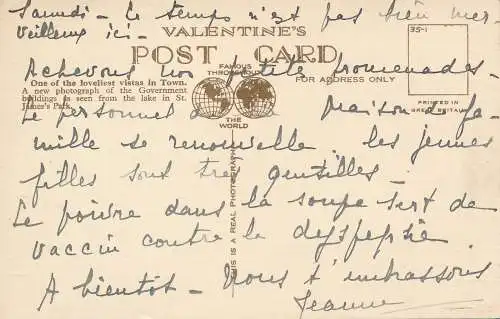 Samedi - Le temps n'est pas bien mer-
veilleux ici -
VALENTINE'S
POST CARD
FAMOUS
THROUGHOUT
THE
WORLD
FOR ADDRESS ONLY
35-1
PRINTED IN
GREAT BRITAIN
One of the loveliest vistas in Town.
A new photograph of the Government
buildings as seen from the lake in St.
James's Park.
THIS IS A REAL PHOTOGRAPH
Achevons nos petites promenades -
Le personnel de Maison de fa-
mille se renouvelle. les jeunes
filles sont très gentilles -
Le poivre dans la soupe sert de
vaccin contre la dyspepsie
A bientôt - Nous t'embrassons
Jeanne